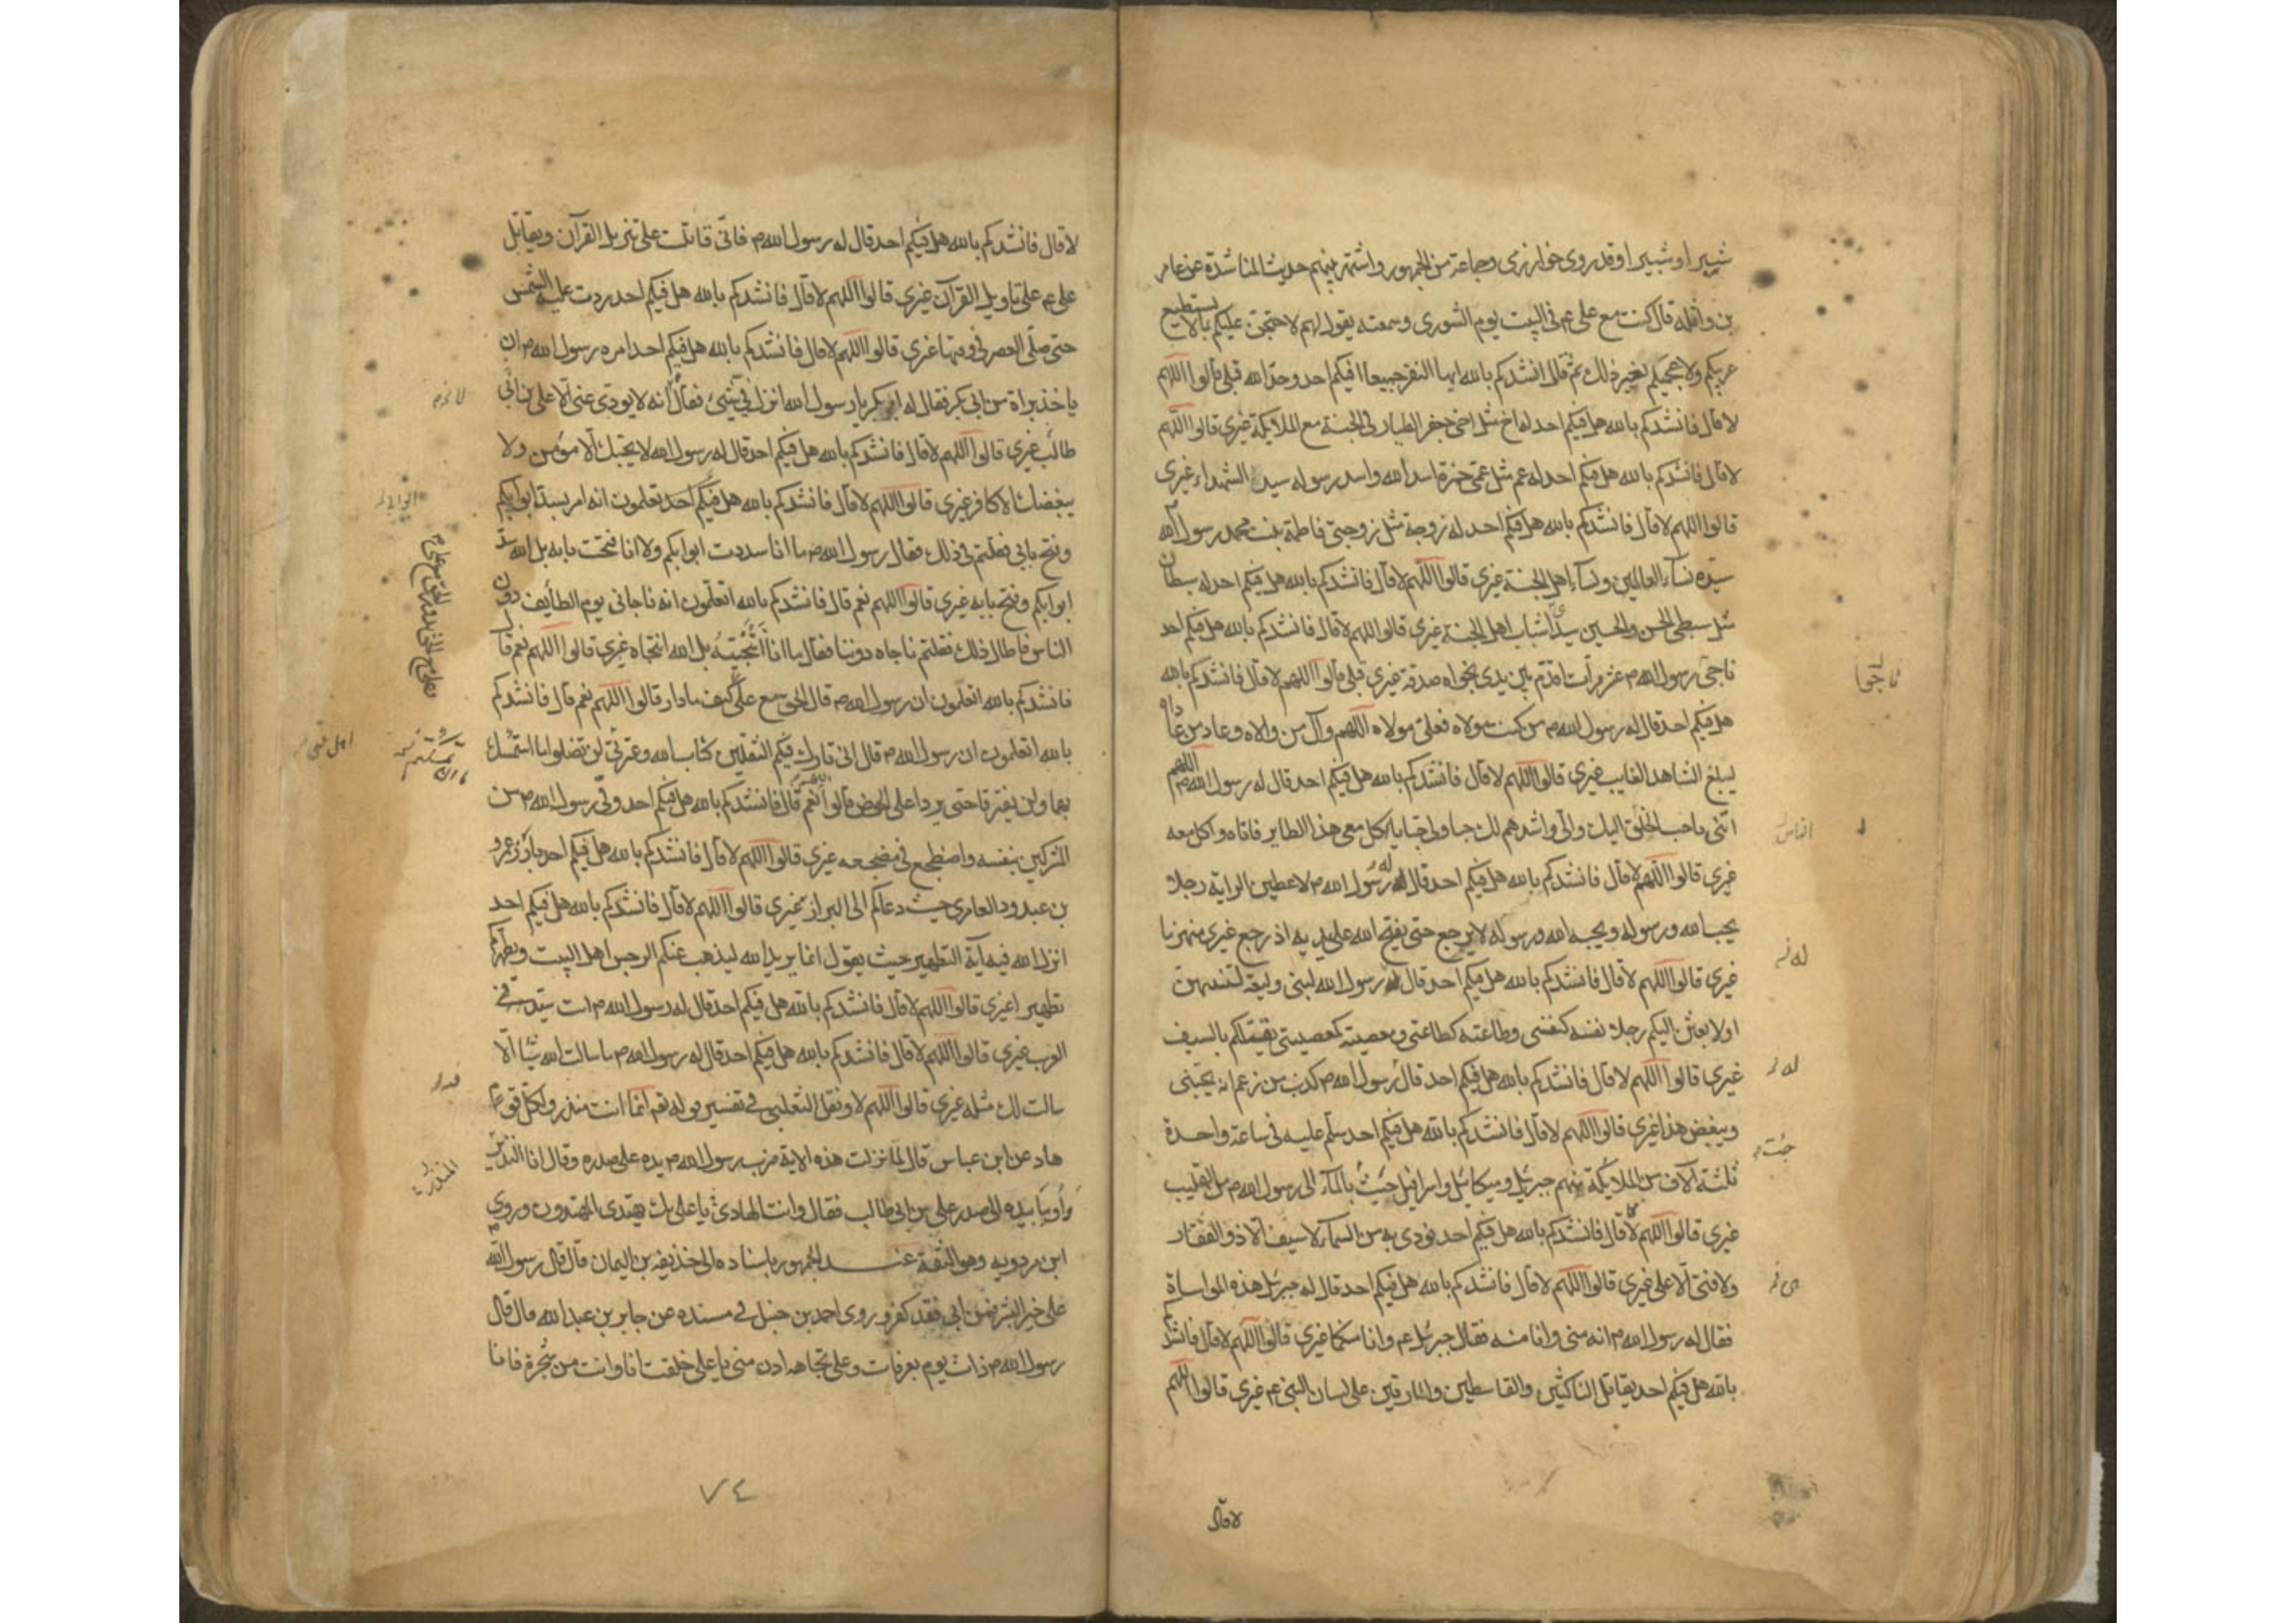 شبيرا وشبيرا وقد روى خوارزمى وجماعة من الجمهور واشتهر بينهم حديث المناشدة عن عامر
بن واثله قال كنت مع على ع م فى البيت يوم الشورى وسمعته يقول لهم لاحتجن عليكم بما لا يستطيع
عربيكم ولا عجميكم تغيير ذلك ثم قال انشدكم بالله ايها النفر جميعا افيكم احد وحد الله قبلى قالوا اللهم
لا قال فانشدكم بالله هل فيكم احد له اخ مثل اخى جعفر الطيار فى الجنة مع الملايكة غيرى قالوا اللهم
لا قال فانشدكم بالله هل فيكم احد له عم مثل عمى حمزة اسد الله واسد رسوله سيد الشهداء غيرى
قالوا اللهم لا قال فانشدكم بالله هل فيكم احد له زوجة مثل زوجتى فاطمة بنت محمد رسول الله
سيدة نساء العالمين ونساء اهل الجنة غيرى قالوا اللهم لا قال فانشدكم بالله هل فيكم احد له سبطان
مثل سبطى الحسن والحسين سيدا شباب اهل الجنة غيرى قالوا اللهم لا قال فانشدكم بالله هل فيكم احد
ناجى رسول الله م عشر مرات قدم بين يدى نجواه صدقة غيرى قبلى قالوا اللهم لا قال فانشدكم بالله
هل فيكم احد قال له رسول الله م من كنت مولاه فعلى مولاه اللهم وال من والاه وعاد من عاداه
ليبلغ الشاهد الغايب غيرى قالوا اللهم لا قال فانشدكم بالله هل فيكم احد قال له رسول الله م اللهم
ائتنى باحب الخلق اليك والى واشدهم لك حبا ولى حبا ياكل معى هذا الطاير فاتاه واكل معه
غيرى قالوا اللهم لا قال فانشدكم بالله هل فيكم احد قال له رسول الله م لاعطين الراية رجلا
يحب الله ورسوله ويحبه الله ورسوله لا يرجع حتى يفتح الله على يديه اذ رجع غيرى منهزما
غيرى قالوا اللهم لا قال فانشدكم بالله هل فيكم احد قال رسول الله لبنى وليعة لتنتهن
اولابعثن اليكم رجلا نفسه كنفسى وطاعته كطاعتى ومعصيته كمعصيتى يقتلكم بالسيف
غيرى قالوا اللهم لا قال فانشدكم بالله هل فيكم احد قال رسول الله م كذب من زعم انه يحبنى
ويبغض هذا غيرى قالوا اللهم لا قال فانشدكم بالله هل فيكم احد سلم عليه فى ساعة واحدة
ثلثة آلاف من الملايكة منهم جبرئيل وميكائيل واسرافيل حيث بالماء الى رسول الله م من القليب
غيرى قالوا اللهم لا قال فانشدكم بالله هل فيكم احد نودى به من السماء لا سيف الا ذو الفقار
ولا فتى الا على غيرى قالوا اللهم لا قال فانشدكم بالله هل فيكم احد قال له جبرئيل هذه المواساة
فقال له رسول الله م انه منى وانا منه فقال جبرئيل ع م وانا منكما غيرى قالوا اللهم لا قال فانشدكم
بالله هل فيكم احد يقاتل الناكثين والقاسطين والمارقين على لسان النبى ع م غيرى قالوا اللهم
لا قال
لا قال فانشدكم بالله هل فيكم احد قال له رسول الله م فانى قاتلت على تنزيل القرآن ويقاتل
على ع م على تاويل القرآن غيرى قالوا اللهم لا قال فانشدكم بالله هل فيكم احد ردت عليه الشمس
حتى صلى العصر فى وقتها غيرى قالوا اللهم لا قال فانشدكم بالله هل فيكم احد امره رسول الله م ان
ياخذ براة من ابى بكر فقال له ابو بكر يا رسول الله انزل فى شئ فقال انه لا يودى عنى الا على بن ابى
طالب غيرى قالوا اللهم لا قال فانشدكم بالله هل فيكم احد قال له رسول الله لا يحبك الا مؤمن ولا
يبغضك الا كافر غيرى قالوا اللهم لا قال فانشدكم بالله هل فيكم احد تعلمون انه امر بسد ابوابكم
وفتح بابى فقلتم فى ذلك فقال رسول الله م ما انا سددت ابوابكم ولا انا فتحت بابه بل الله سد
ابوابكم وفتح بابه غيرى قالوا اللهم نعم قال فانشدكم بالله اتعلمون انه ناجانى يوم الطائف دون
الناس فاطال ذلك فقلتم ناجاه دوننا فقال ما انا انتجيته بل الله انتجاه غيرى قالوا اللهم نعم قال
فانشدكم بالله اتعلمون ان رسول الله م قال الحق مع على كيف ما دار قالوا اللهم نعم قال فانشدكم
بالله اتعلمون ان رسول الله م قال انى تارك فيكم الثقلين كتاب الله وعترتى لن تضلوا ما استمسك
بهما ولن يفترقا حتى يردا على الحوض قالوا اللهم نعم قال فانشدكم بالله هل فيكم احد وقى رسول الله م من
المشركين بنفسه واضطجع فى مضجعه غيرى قالوا اللهم لا قال فانشدكم بالله هل فيكم احد بارز عمرو
بن عبد ود العامرى حيث دعاكم الى البراز غيرى قالوا اللهم لا قال فانشدكم بالله هل فيكم احد
انزل الله فيه آية التطهير حيث يقول انما يريد الله ليذهب عنكم الرجس اهل البيت ويطهركم
تطهيرا غيرى قالوا اللهم لا قال فانشدكم بالله هل فيكم احد قال له رسول الله م انت سيد
العرب غيرى قالوا اللهم لا قال فانشدكم بالله هل فيكم احد قال له رسول الله م ما سالت الله شيئا الا
سالت لك مثله غيرى قالوا اللهم لا ونقل الثعلبى فى تفسير قوله تعم انما انت منذر ولكل قوم
هاد عن ابن عباس قال لما نزلت هذه الاية ضرب رسول الله م يده على صدره وقال انا النذير
واومأ بيده الى صدر على بن ابى طالب فقال وانت الهادى يا على بك يهتدى المهتدون وروى
ابن مردويه وهو الثقة عند الجمهور باسناده الى حذيفة بن اليمان قال قال رسول الله م
على خير البشر فمن ابى فقد كفر وروى احمد بن حنبل فى مسنده عن جابر بن عبد الله قال قال
رسول الله م ذات يوم بعرفات وعلى تجاهه ادن منى يا على خلقت انا وانت من شجرة فانا
٧٤